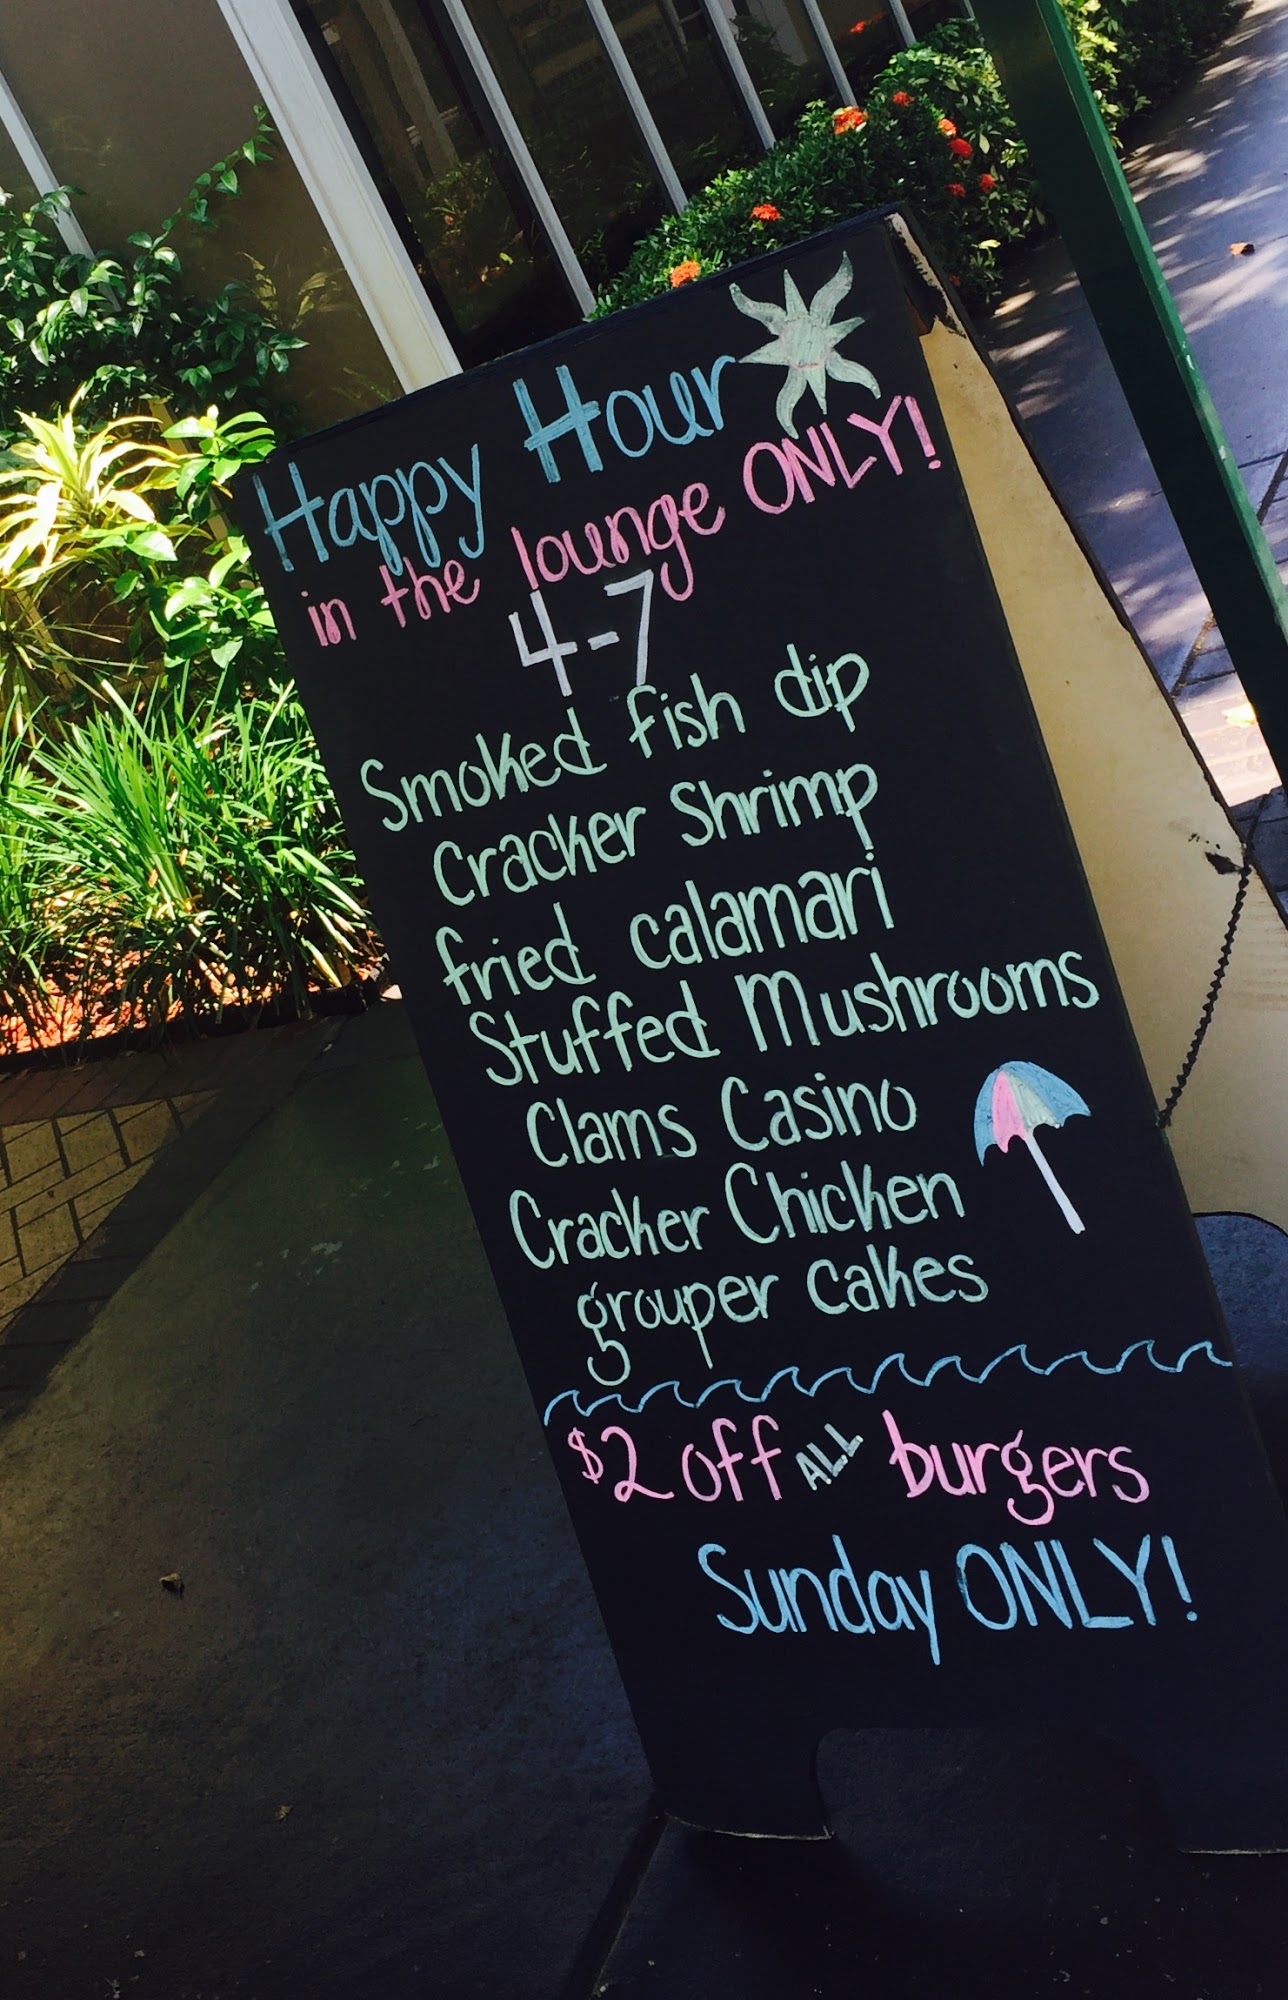 Happy Hour
in the lounge ONLY!
4-7
Smoked fish dip
Cracker Shrimp
fried calamari
Stuffed Mushrooms
Clams Casino
Cracker Chicken
grouper cakes
$2 off ALL burgers
Sunday ONLY!